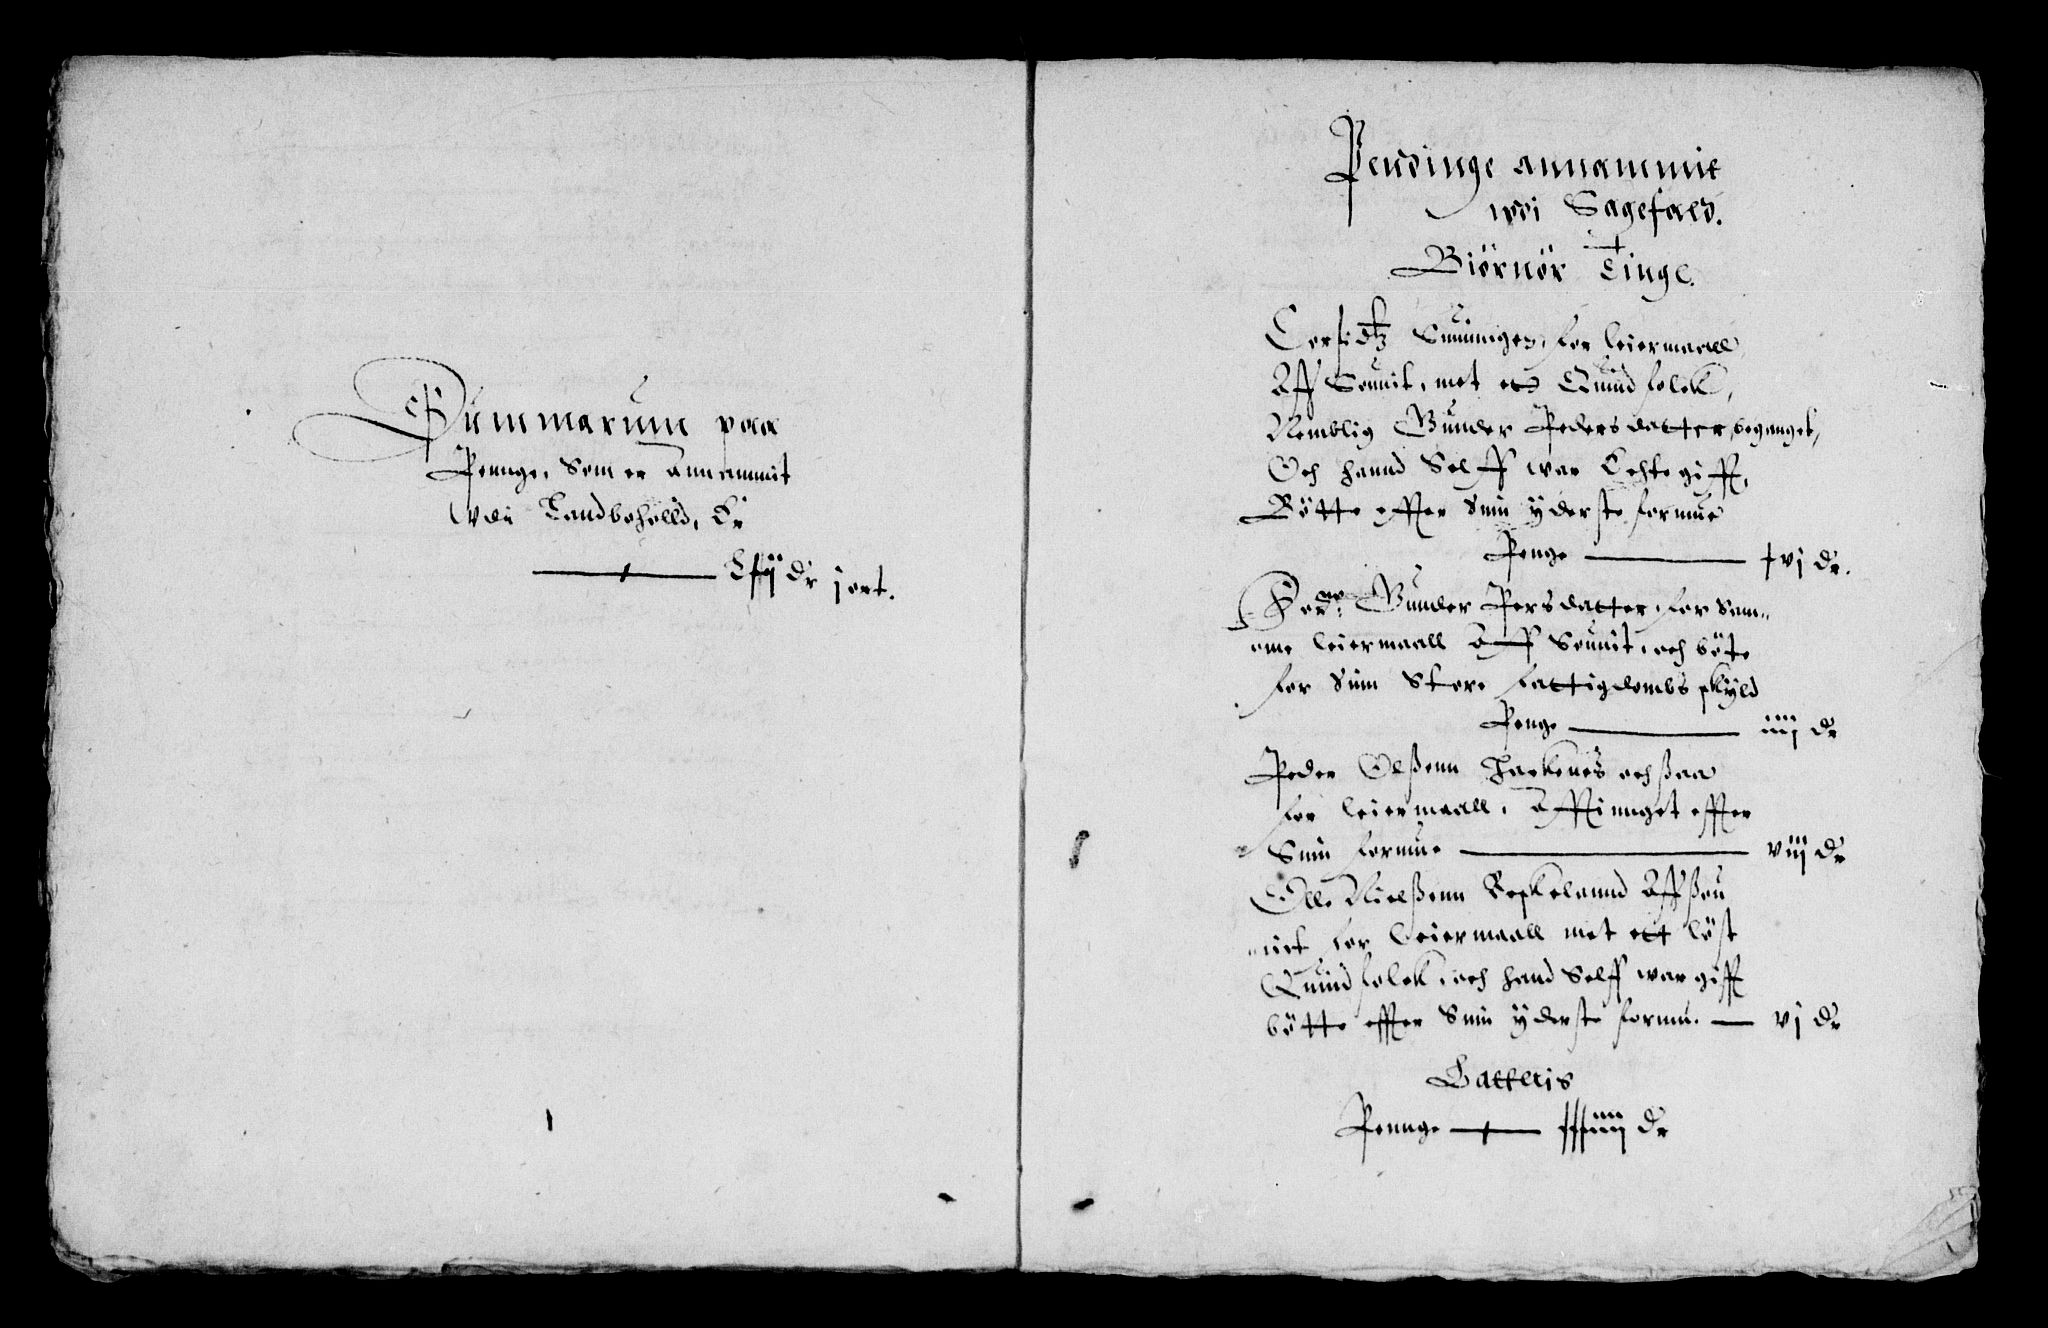 Summarum paa
Pennge, Som er Annammit
Vdi Landboholld, Er
Lxij dr j ort.
Pendinge annammit
wdi Sagefald.
Biörnör Tinge.
Suninger, for leiermaall
Aff Sonnit, met et Quindfolck,
Nemblig Gunder Pedersdatter, beganget,
Och hannd Selff war Echtegifft,
Bötte effter Sinn yderste formue
Penge xvj dr.
Gunder Persdatter, for Sam-
me leiermaall Aff Sonnit, och böte
for Sinn Store fattigdombs skyld
Penge iiij dr
Peder Olßenn och ßaa
for leiermaall, Affinnget effter
Sinn formue viij dr
Olle Nielßenn Aff ßon-
nit for leiermaall met ett löst
Quindfolck, och hand Selff war gifft
bötte effter Sinn yderste formue vj dr
Latteris
Pennge xxxiiij dr